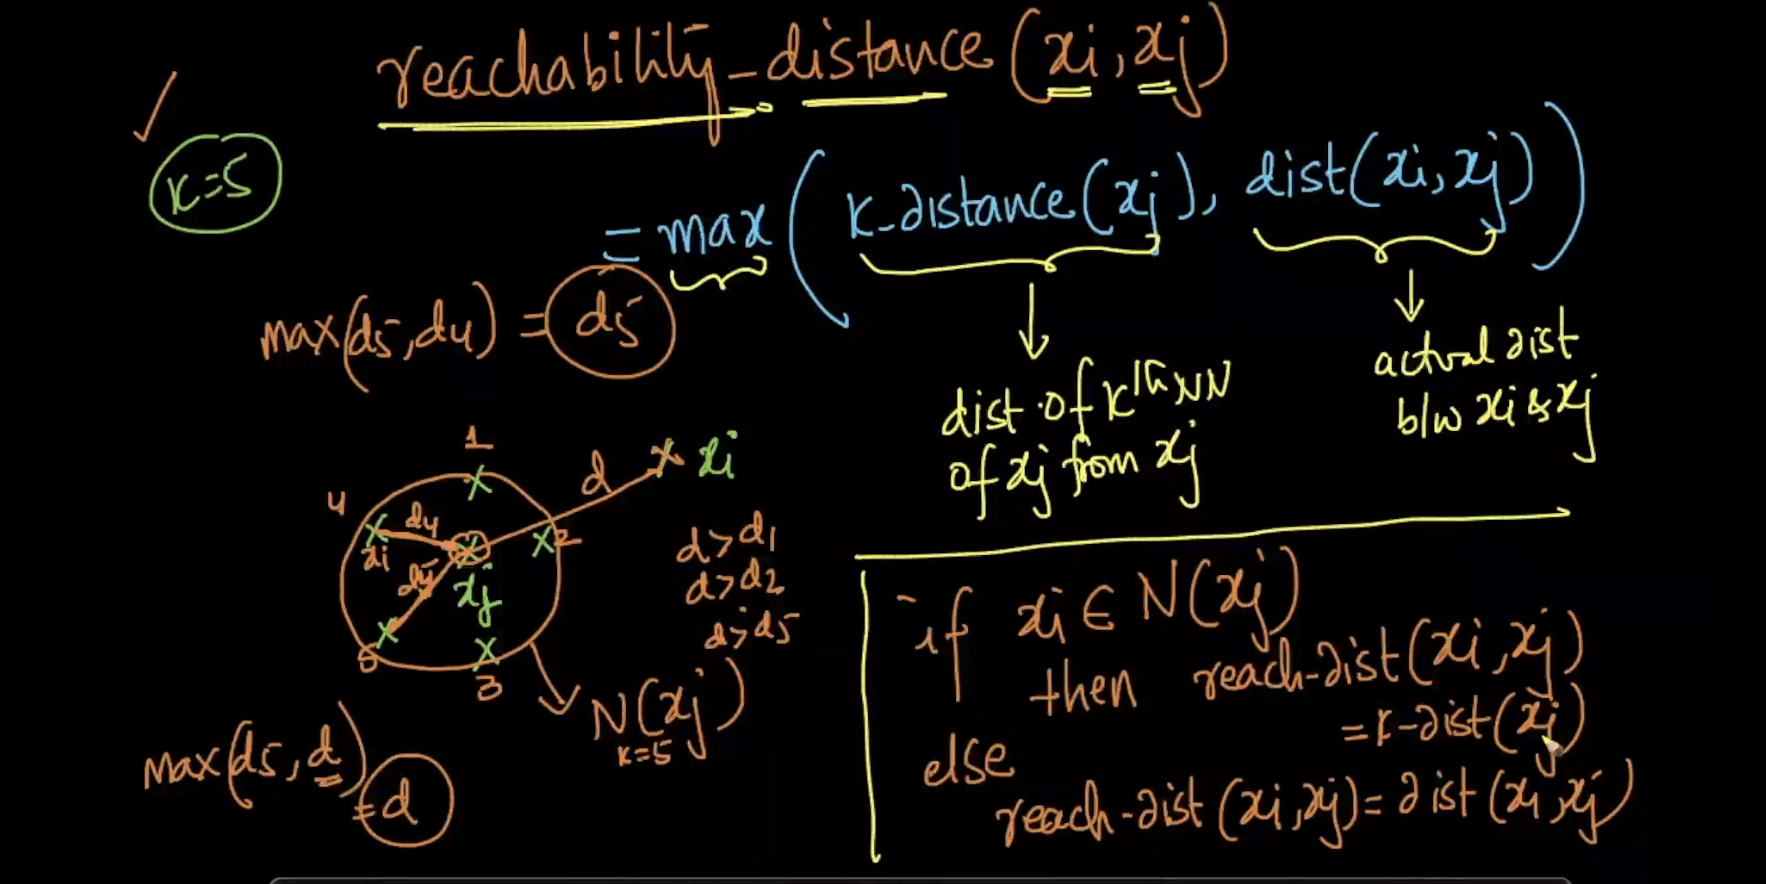 reachability_distance(xi, xj)
K=5
= max(K_distance(xj), dist(xi, xj))
max(d5, d4) = d5
dist of Kth NN
of xj from xj
actual dist
b/w xi & xj
1
4
d4
xi
xj
d5
2
5
3
d
xi
d>d1
d>d2
d>d5
N(xj)
K=5
max(d5, d)
=d
if xi ∈ N(xj)
then reach-dist(xi, xj)
=K-dist(xj)
else
reach-dist(xi, xj)= dist(xi, xj)